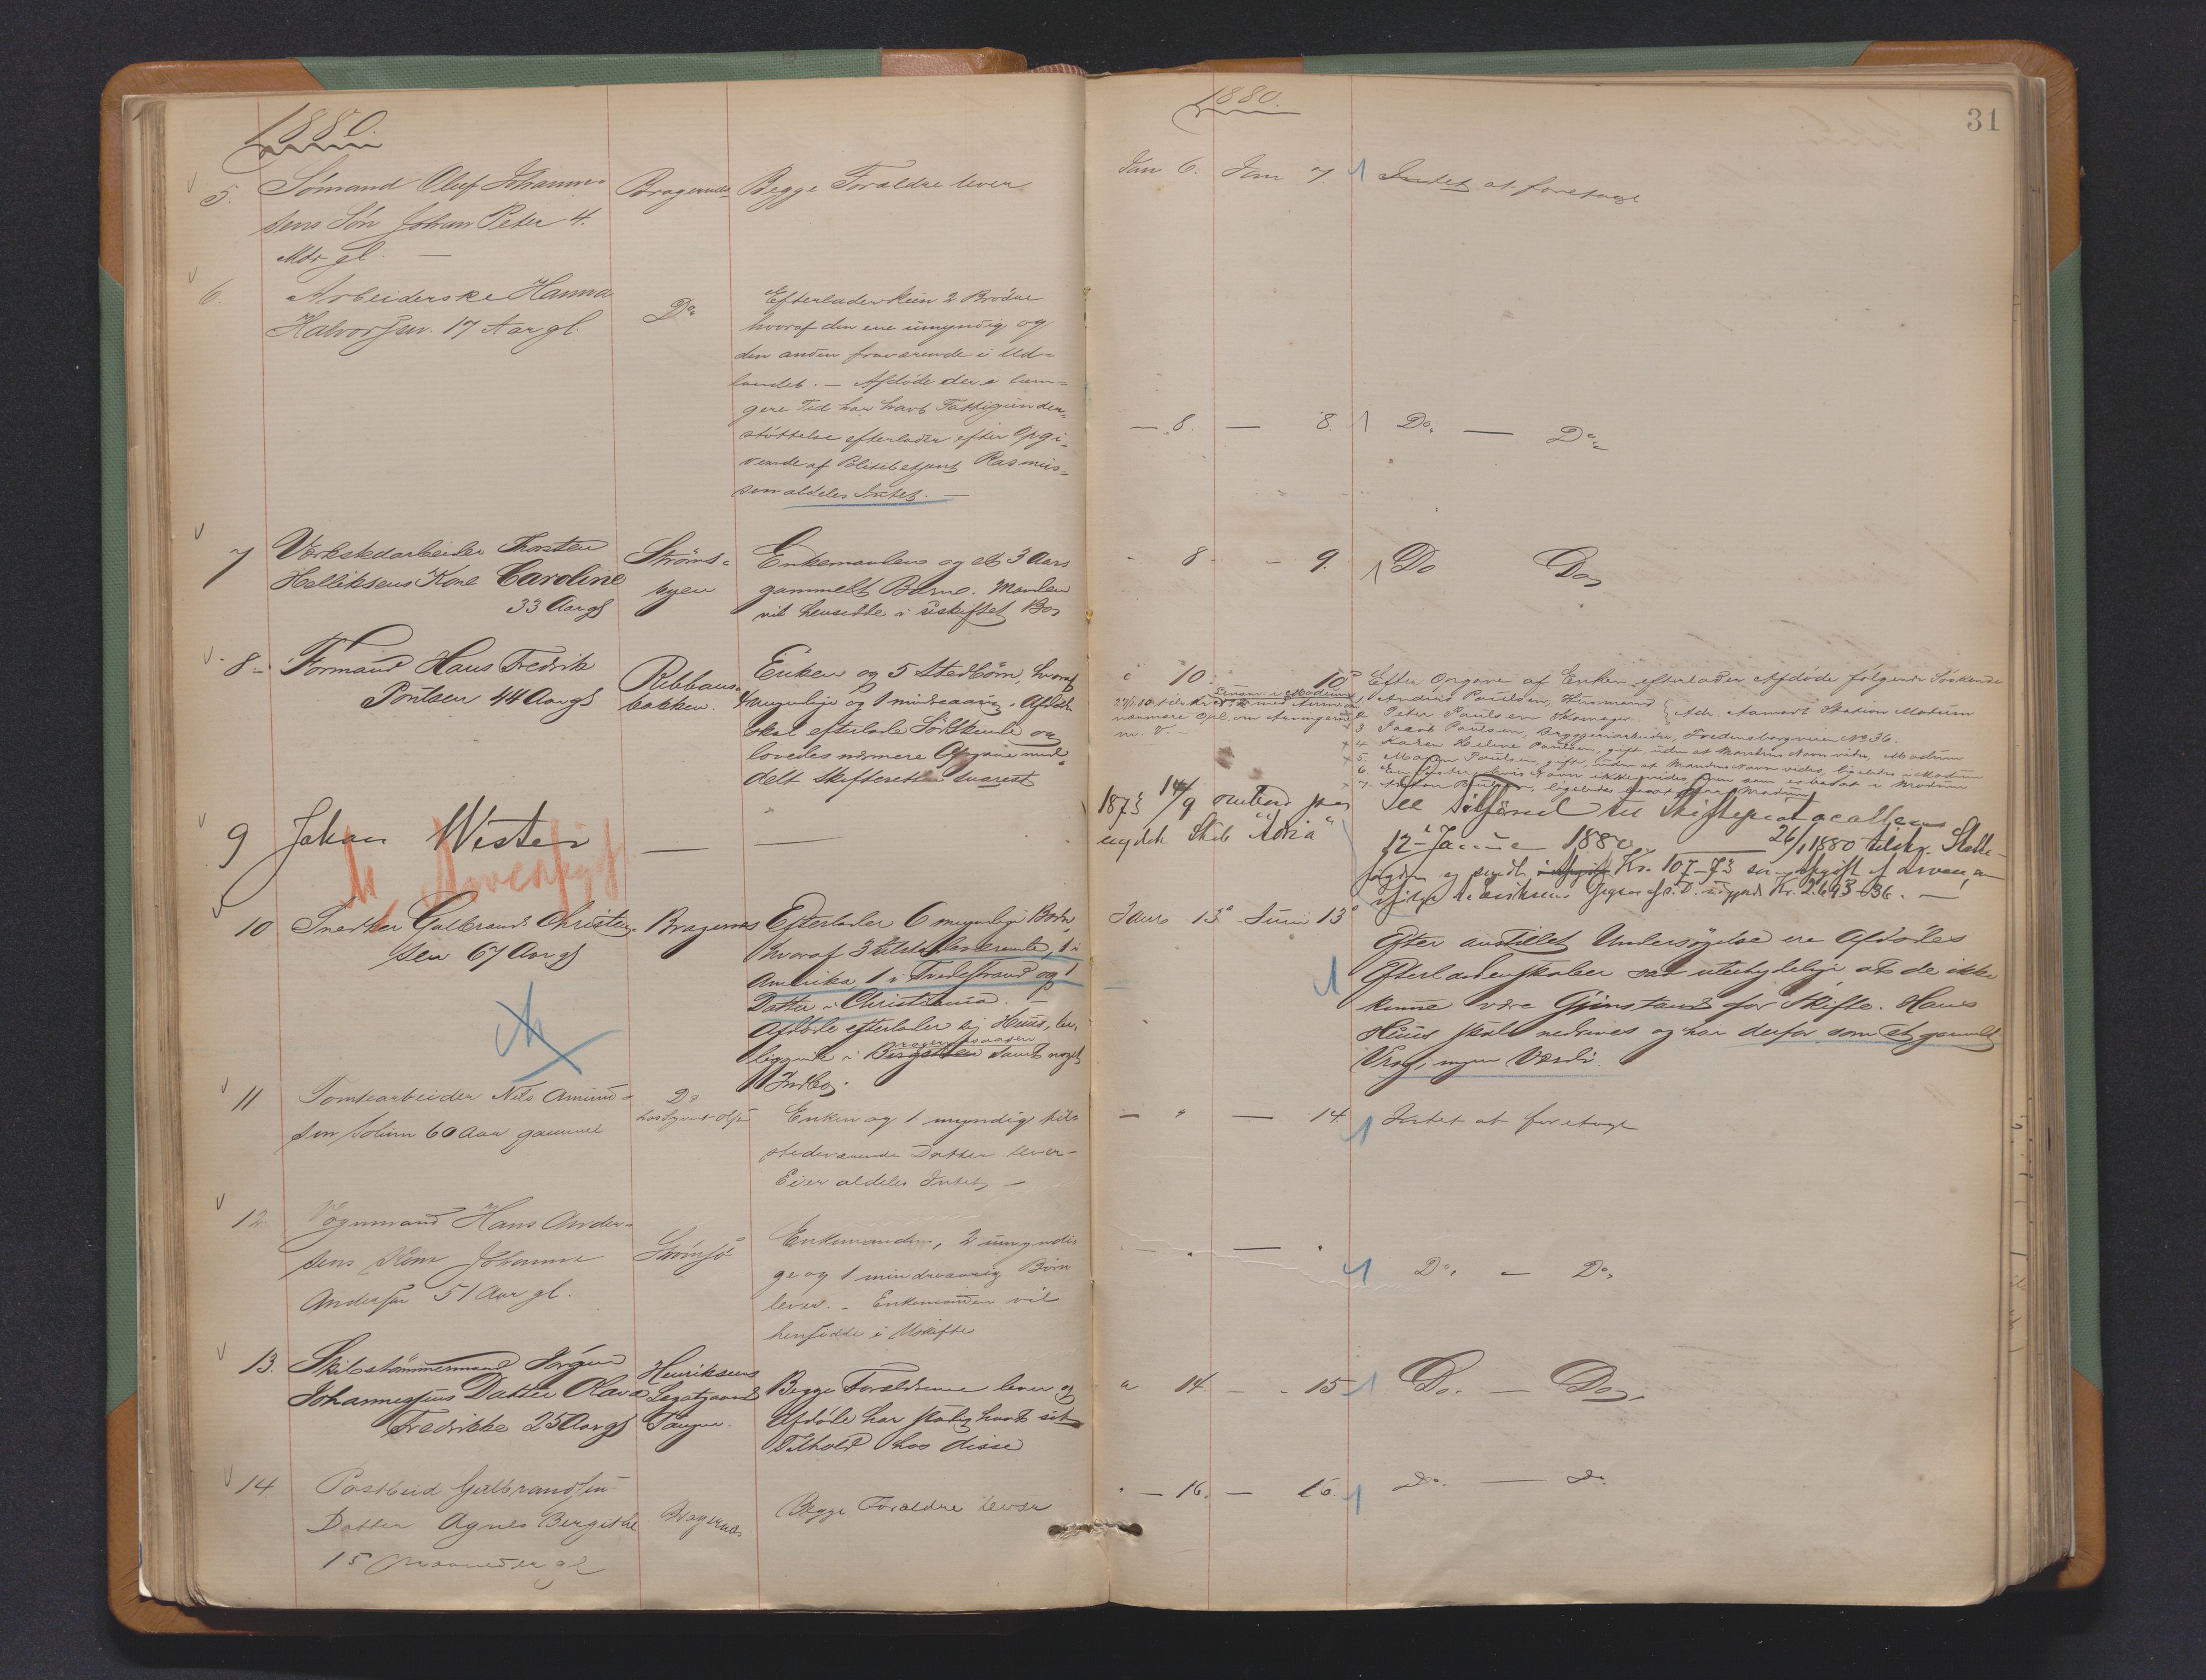 1880.
5. Sömand Oluf Johann-
sens Sön Johan Peter 4.
Mdr gl. —
Bragernes
Begge Forældre lever
6. Arbeiderske Hanna
Halvorsen. 17 Aar gl.
Do
Efterlader kun 2 Brödre
hvoraf den ene umyndig og
den anden fraværende i Ud-
landet. — Afdöde der i læn-
gere Tid har havt Fattigunder-
støttelse efterlader efter Opgi-
vende af Politibetjent Rasmus-
sen aldeles Intet. —
7 Værkstedarbeider Thorsten
Helliksens Kone Caroline
33 Aar gl
Ströms-
Enkemanden og et 3 Aars
gammelt Barn. Manden
vil hensidde i uskiftet Bo
8 Formand Hans Fredrik
Poulsen 44 Aar gl
Ribbans-
bakken.
Enken og 5 Stedbörn, hvoraf
4 myndige og 1 mindreaarig. Afdöde
skal efterlade Södskende og
lovedes nærmere Opgave med-
delt Skifteretten snarest
9 Johan Wister
— —
10 Snedker Gulbrand Christen-
sen 67 Aar gl
Bragernes
Efterlader 6 myndige Börn,
hvoraf 3 tilstedeværende, 1 i
Amerika, 1 i Tvedestrand og 1
Datter i Christiania. —
Afdöde efterlader sig Huus, be-
liggende i Bragernesaasen samt noget
Indbo.
11 Tomtearbeider Nils Amund-
sen Solum 60 Aar gammel
Do
Enken og 1 myndig til-
stedeværende Datter lever—
Eier aldeles Intet, —
12 Vognmand Hans Ander-
sens Kone Johanne
Andersen 51 Aar gl.
Strömsö
Enkemanden, 2 umyndi-
ge og 1 mindreaarig Börn
lever. – Enkemanden vil
hensidde i Uskifte
13. Skibstömmermand Jörgen
Johannessens Datter Olava
Fredrikke 25 Aar gl
Henriksens
Legatgaard
Tangen.
Begge Forældrene lever og
Afdöde har stadig havt sit
Tilhold hos disse
14 Postbud Gulbrandsens
Datter Agnes Bergithe
15 Maaneder gl
Bragernes
Begge Forældre lever
1880.
31
Jan 6. Jan 7 Intet at foretage
— 8. — 8. Do. — Do.
- 8 - - 9. Do Do
" 10. 10. Efter Opgave af Enken efterlader Afdöde følgende Söskende
1 Anders Paulsen, Husmand
2 Peter Paulsen Skomager. } Adr. Aamodt Station Modum
3 Jacob Paulsen, Bryggeriarbeider, Fredensborgveien No 36.
4. Karen Helene Paulsen, gift, uden at Mandens Navn vides, Modum
5. Maren Paulsen, gift, uden at Mandens Navn vides, ligeledes i Modum
6. En Söster, hvis Navn ikke vides, men som er bosat i Modum
7. Anton Paulsen, ligeledes bosat i Modum
1873 14/9 ombord paa
engelsk Skib "Adria"
Se Tilförsel til Skifteprotocollen
12 Januar 1880. 26/1 1880 tilskr.
Kr. 107-73 Afgift af Arven,
Kr. 2693-36. —
Januar 13 Januar 13
Efter anstillet Undersögelse ere Afdödes
Efterladenskaber saa ubetydelige at de ikke
kunne være Gjenstand for Skifte. Hans
Huus skal nedrives og har derfor som et gammelt
Vrag, ingen Værdi.
— " — 14. Intet at foretage
— " — " Do. — Do.
" 14. — - 15 Do. — Do.
" — 16. — 16. Do. — Do.